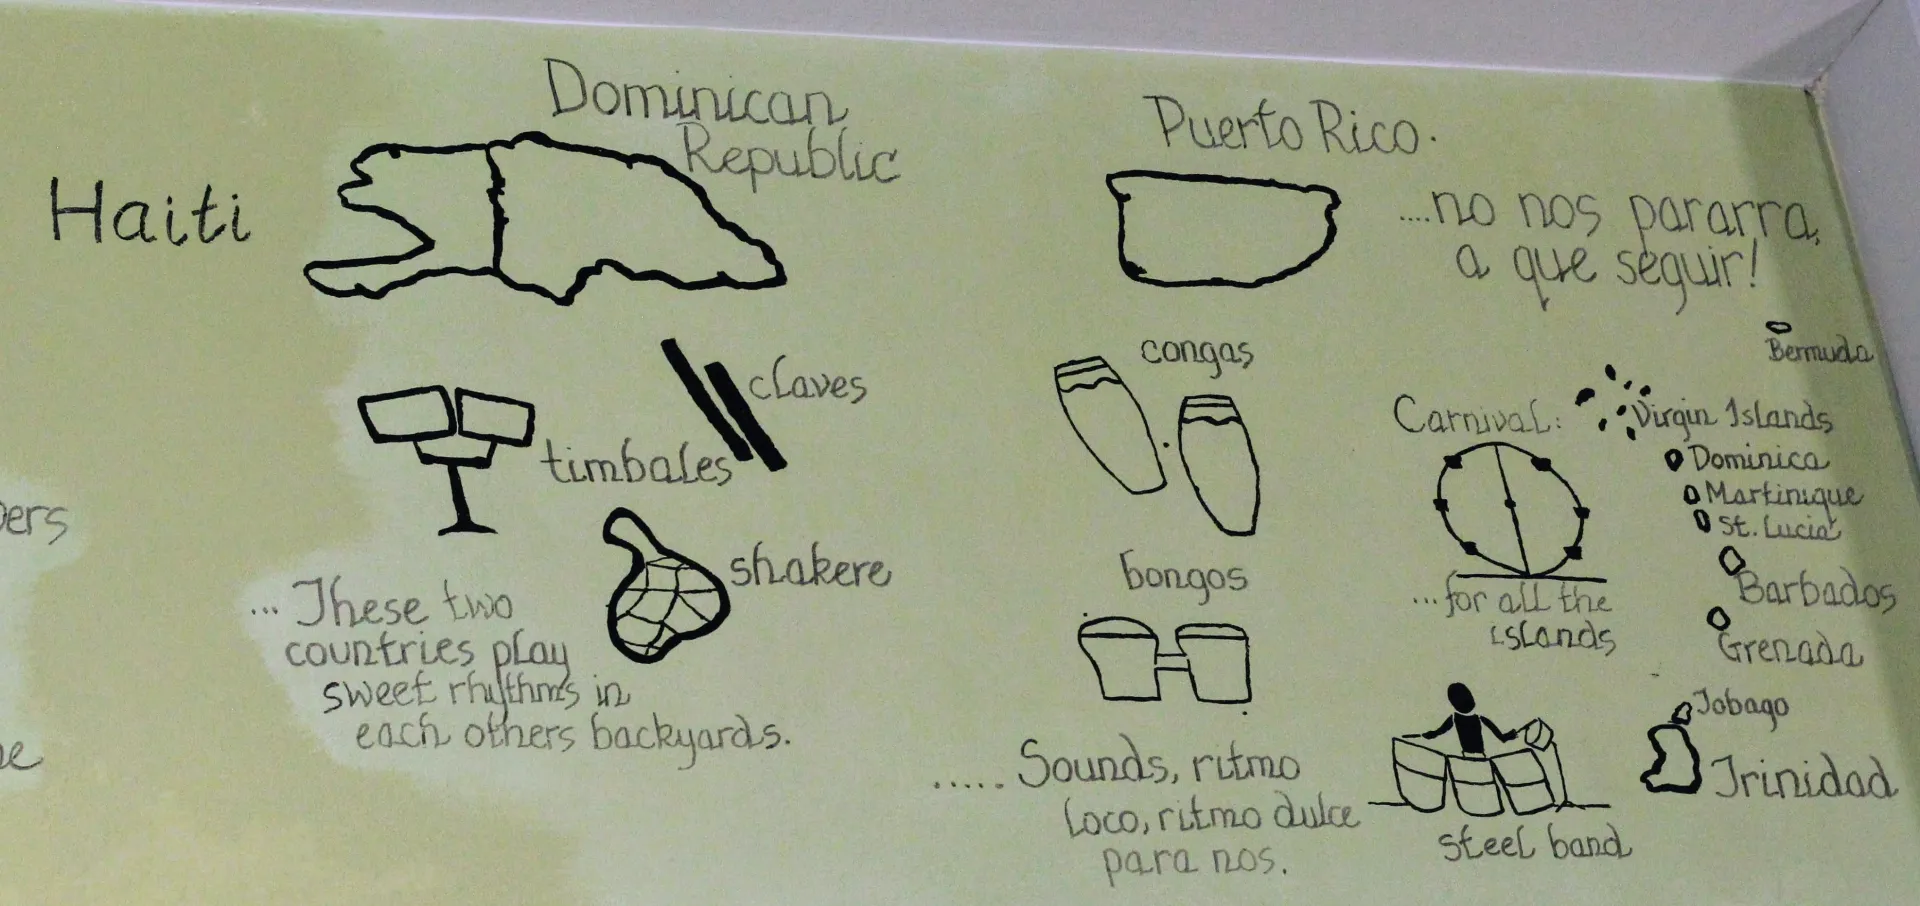 Haiti
Dominican
Republic
Puerto Rico.
....no nos pararra,
a que seguir!
claves
timbales
shakere
... These two
countries play
sweet rhythms in
each others backyards.
congas
bongos
..... Sounds, ritmo
loco, ritmo dulce
para nos.
Carnival:
...for all the
islands
steel band
Bermuda
Virgin Islands
Dominica
Martinique
St. Lucia
Barbados
Grenada
Tobago
Trinidad